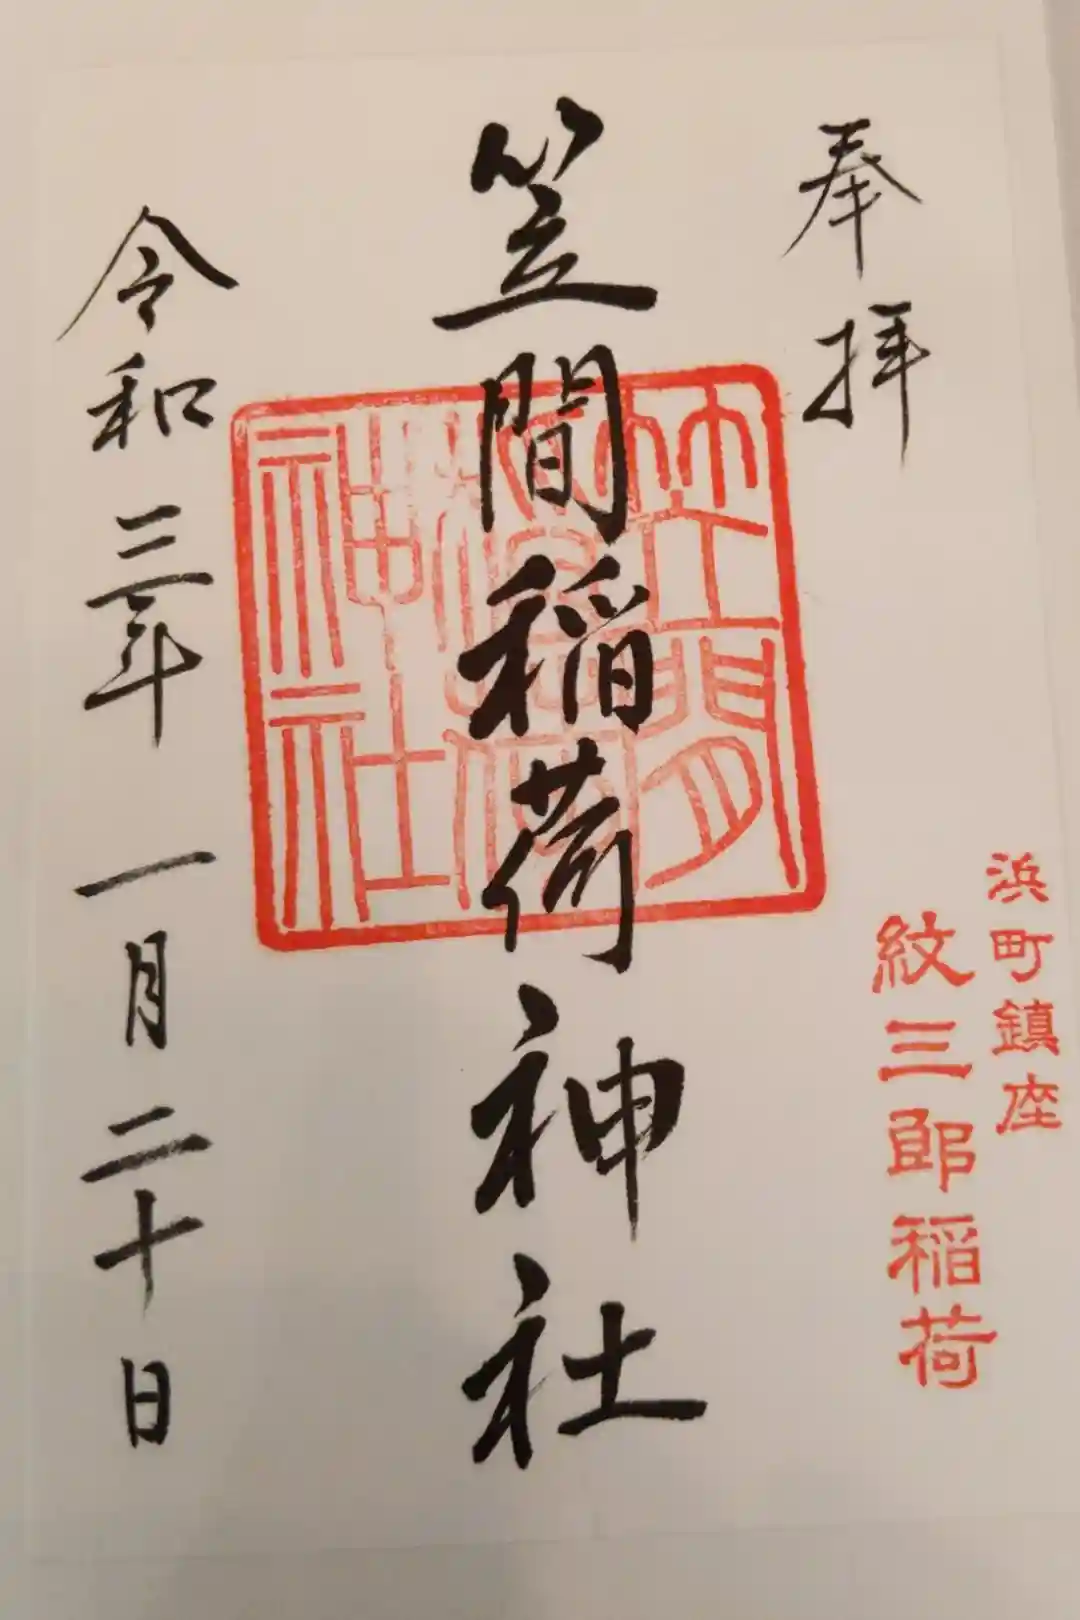 奉拝
浜町鎮座
紋三郎稲荷
笠間稲荷神社
笠間
稲荷
神社
令和三年一月二十日